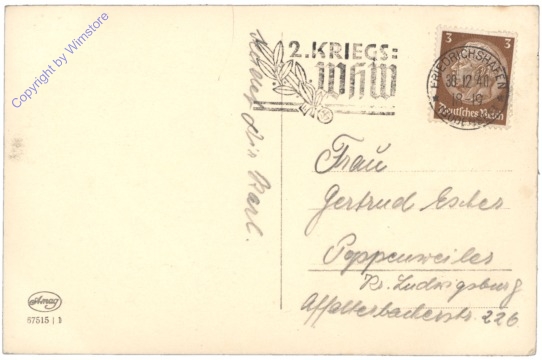 Copyright by Wimstore
2. KRIEGS:
WHW
3 3
FRIEDRICHSHAFEN
30.12.40
Deutsches Reich
Karl.
Frau
Gertrud Escher
Poppenweiler
Kr. Ludwigsburg
Affalterbacherstr. 226
67515 | 3